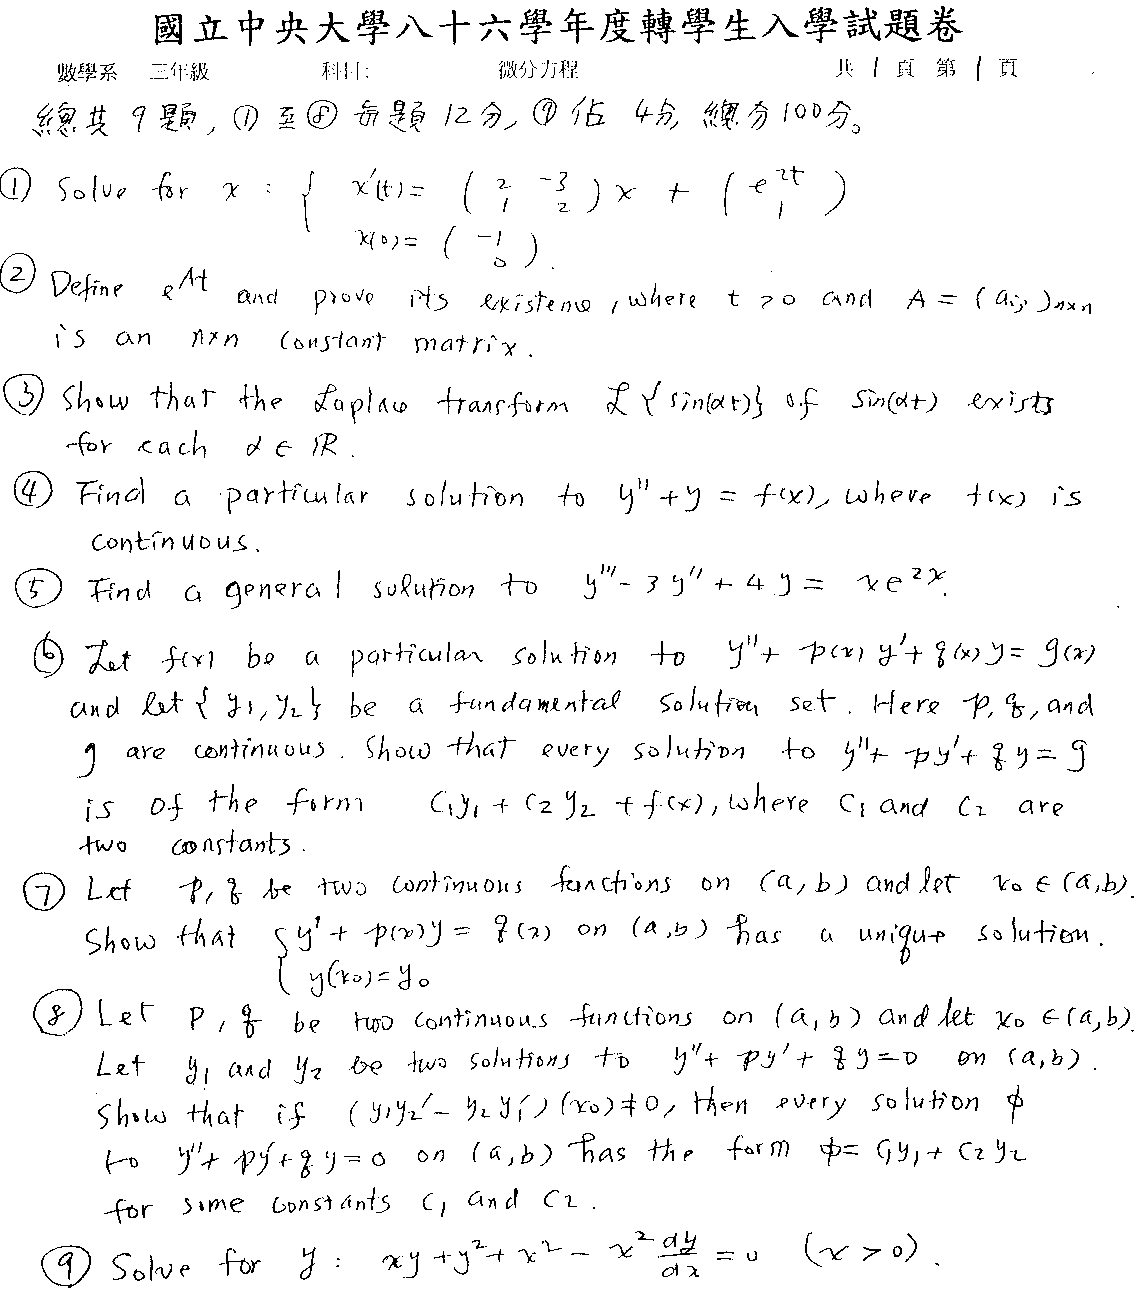 國立中央大學八十六學年度轉學生入學試題卷
數學系 三年級 科目: 微分方程 共 1 頁 第 1 頁
總共 9 題, ① 至 ⑧ 每題 12 分, ⑨ 佔 4分, 總分 100分。
① Solve for x : { x'(t) = ( 2 -3 ; 1 2 ) x + ( e^{2t} ; 1 )
x(0) = ( -1 ; 0 ).
② Define e^{At} and prove its existence, where t > 0 and A = (a_{ij})_{n×n}
is an n×n constant matrix.
③ Show that the Laplace transform ℒ{sin(αt)} of sin(αt) exists
for each α ∈ ℝ.
④ Find a particular solution to y'' + y = f(x), where f(x) is
continuous.
⑤ Find a general solution to y''' - 3y'' + 4y = xe^{2x}.
⑥ Let f(x) be a particular solution to y'' + p(x)y' + q(x)y = g(x)
and let {y₁, y₂} be a fundamental solution set. Here p, q, and
g are continuous. Show that every solution to y'' + py' + qy = g
is of the form c₁y₁ + c₂y₂ + f(x), where c₁ and c₂ are
two constants.
⑦ Let p, q be two continuous functions on (a, b) and let x₀ ∈ (a, b).
Show that { y' + p(x)y = q(x) on (a, b) has a unique solution.
y(x₀) = y₀
⑧ Let p, q be two continuous functions on (a, b) and let x₀ ∈ (a, b).
Let y₁ and y₂ be two solutions to y'' + py' + qy = 0 on (a, b).
Show that if (y₁y₂' - y₂y₁')(x₀) ≠ 0, then every solution ϕ
to y'' + py' + qy = 0 on (a, b) has the form ϕ = c₁y₁ + c₂y₂
for some constants c₁ and c₂.
⑨ Solve for y : xy + y² + x² - x² dy/dx = 0 (x > 0).